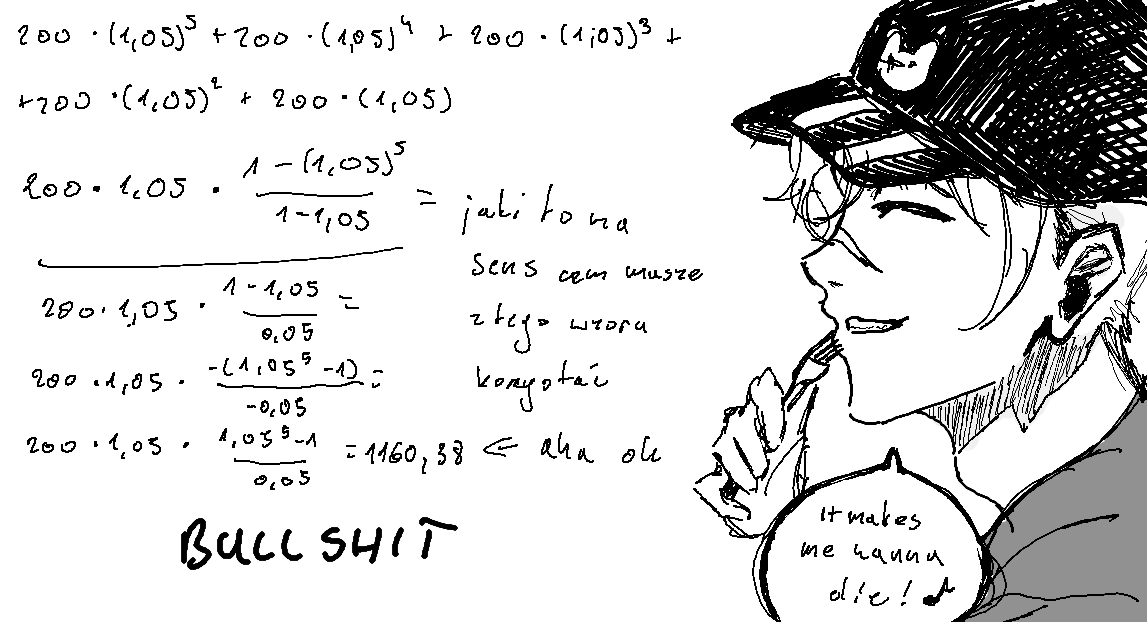 200 · (1,05)⁵ + 200 · (1,05)⁴ + 200 · (1,05)³ +
+200 · (1,05)² + 200 · (1,05)
200 · 1,05 · (1 - (1,05)⁵)/(1 - 1,05) =
jaki to ma
sens czm musze
z tego wzoru
korzystać
200 · 1,05 · (1 - 1,05)/(0,05) =
200 · 1,05 · (-(1,05⁵ - 1))/(-0,05) =
200 · 1,05 · (1,05⁵ - 1)/(0,05) = 1160,38 ← aha ok
BULLSHIT
It makes
me wanna
die! ♪